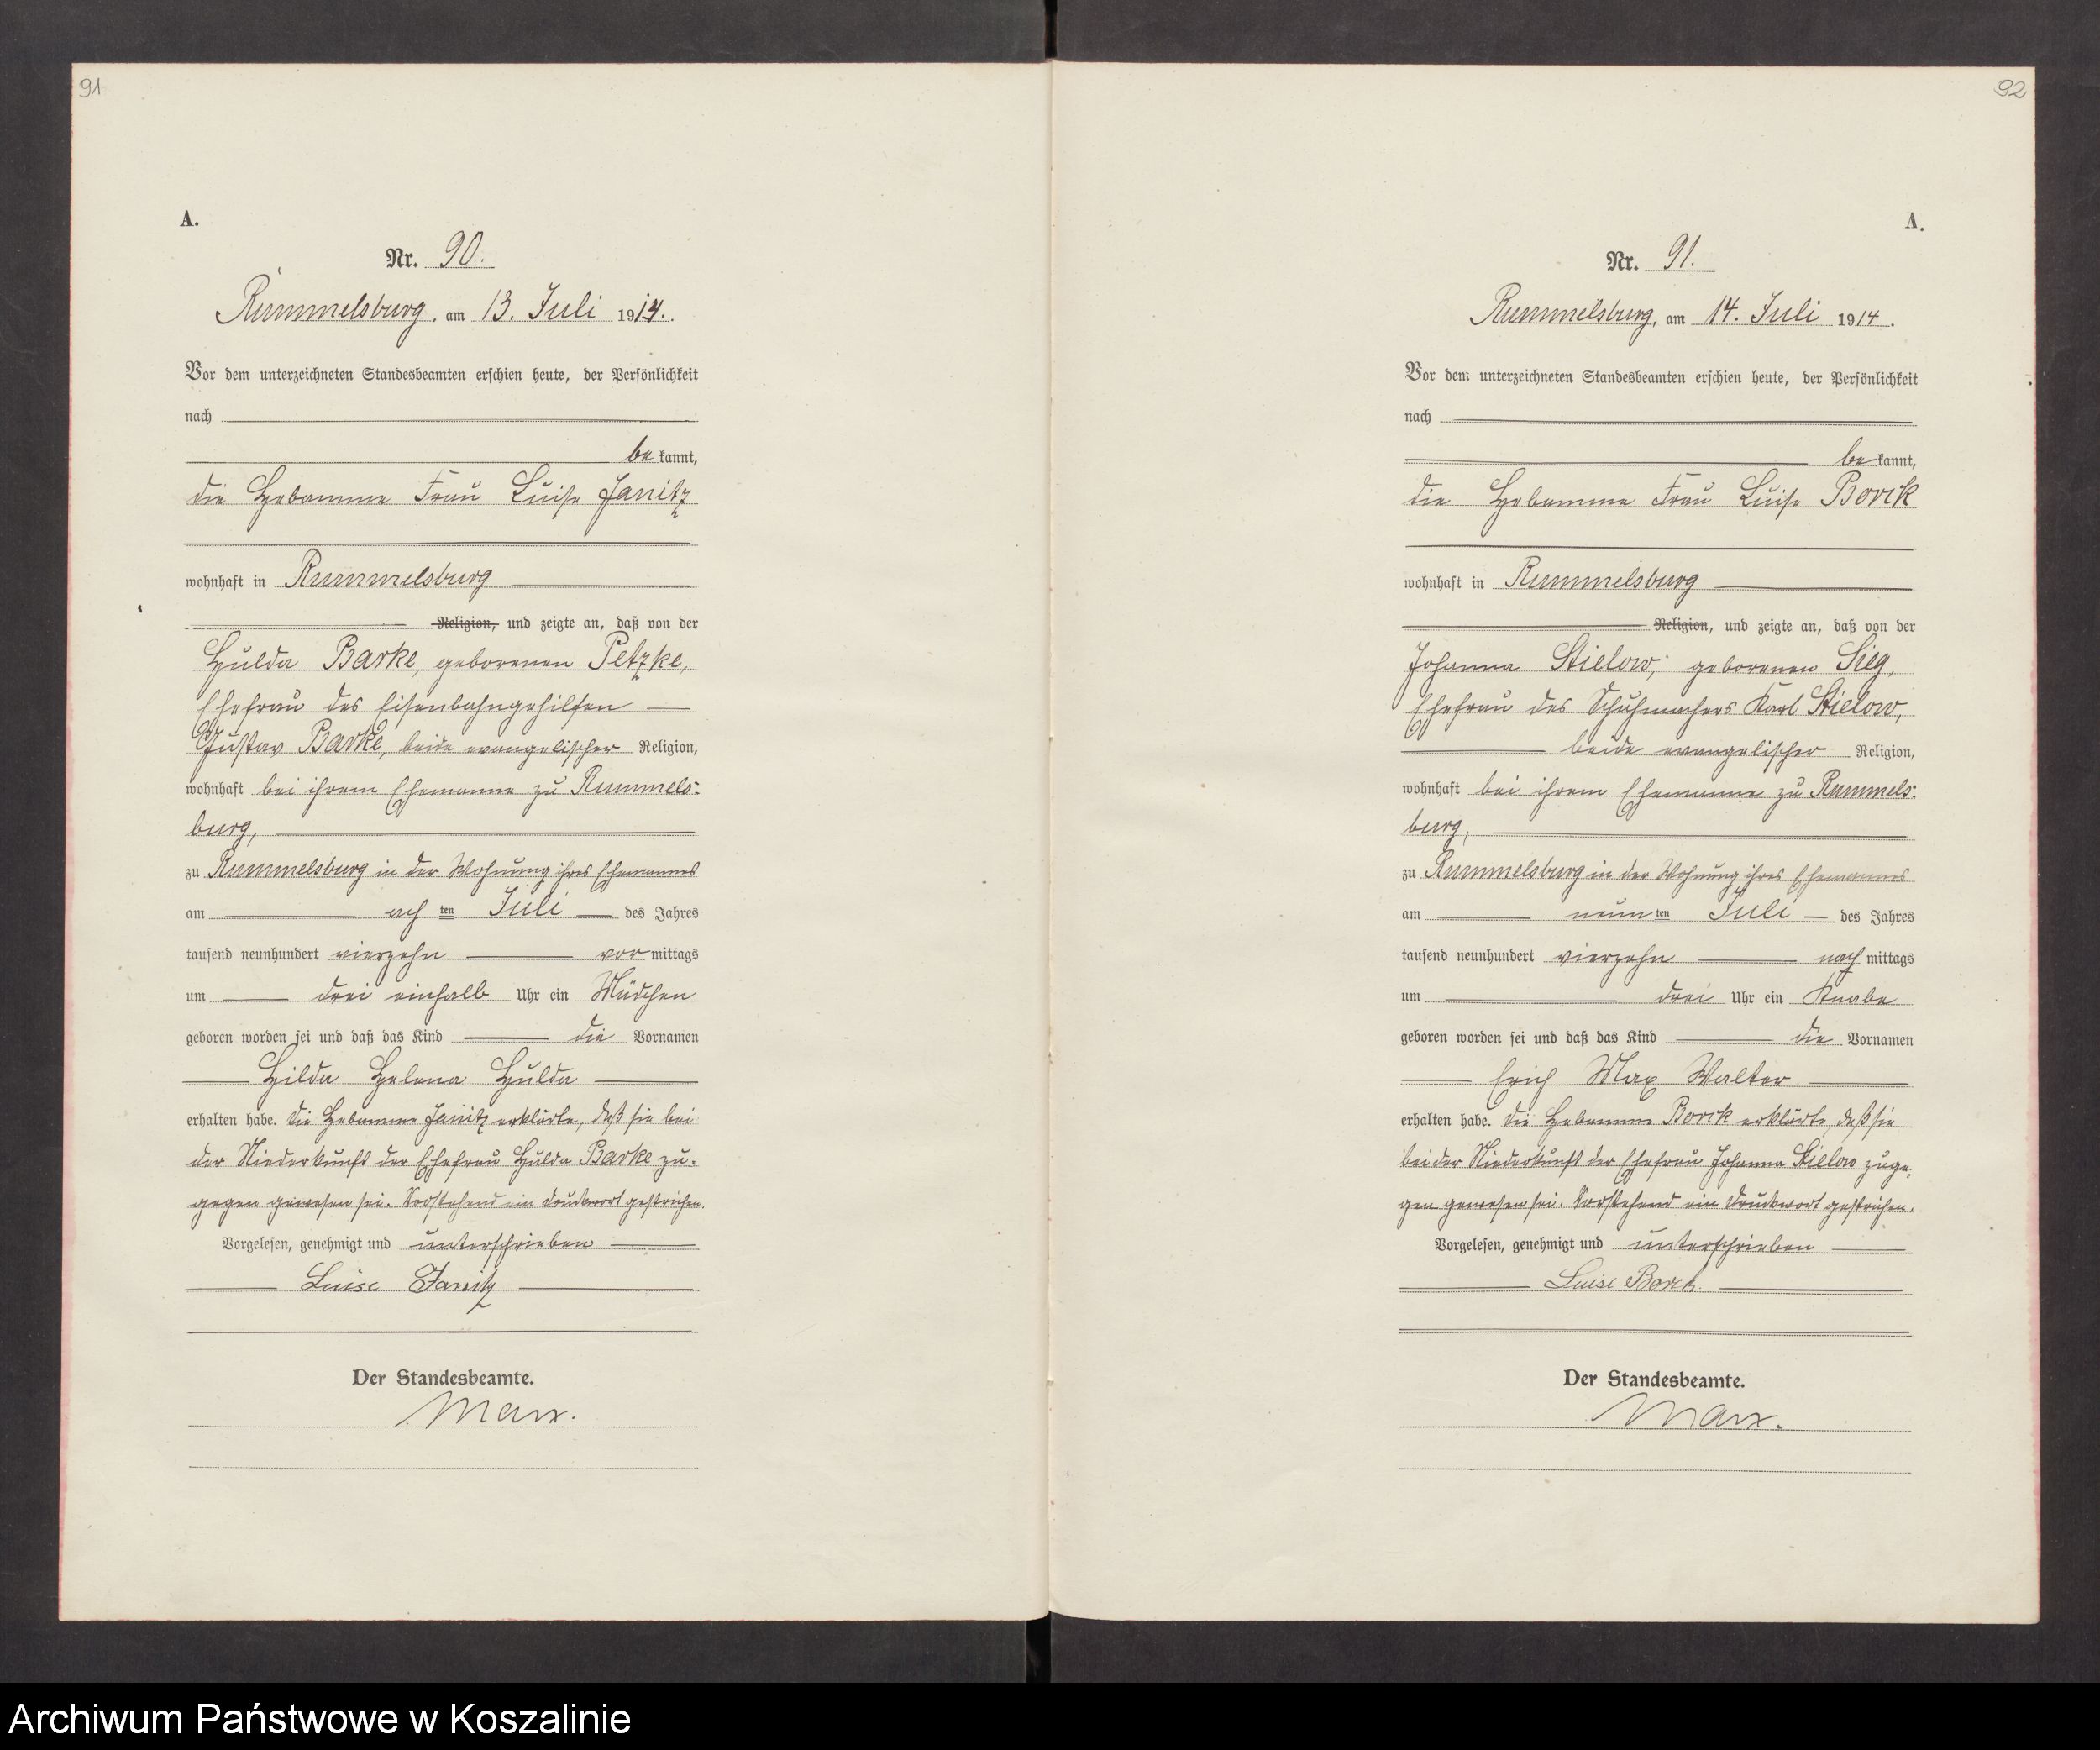 91
A.
Nr. 90.
Rummelsburg, am 13. Juli 1914.
Vor dem unterzeichneten Standesbeamten erschien heute, der Persönlichkeit
nach
be kannt,
die Hebamme Frau Luise Janitz
wohnhaft in Rummelsburg
Religion, und zeigte an, daß von der
Hulda Barke, geborenen Petzke,
Ehefrau des Eisenbahngehilfen
Gustav Barke, beide evangelischer Religion,
wohnhaft bei ihrem Ehemanne zu Rummels-
burg,
zu Rummelsburg in der Wohnung ihres Ehemannes
am ach ten Juli des Jahres
tausend neunhundert vierzehn vor mittags
um drei einhalb Uhr ein Mädchen
geboren worden sei und daß das Kind die Vornamen
Hilda Helena Hulda
erhalten habe. Die Hebamme Janitz erklärte, daß sie bei
der Niederkunft der Ehefrau Hulda Barke zu-
gegen gewesen sei. Vorstehend ein Druckwort gestrichen.
Vorgelesen, genehmigt und unterschrieben
Luise Janitz
Der Standesbeamte.
Marx.
92
A.
Nr. 91.
Rummelsburg, am 14. Juli 1914.
Vor dem unterzeichneten Standesbeamten erschien heute, der Persönlichkeit
nach
be kannt,
die Hebamme Frau Luise Borck
wohnhaft in Rummelsburg
Religion, und zeigte an, daß von der
Johanna Stielow, geborenen Sieg,
Ehefrau des Schuhmachers Karl Stielow,
beide evangelischer Religion,
wohnhaft bei ihrem Ehemanne zu Rummels-
burg,
zu Rummelsburg in der Wohnung ihres Ehemannes
am neun ten Juli des Jahres
tausend neunhundert vierzehn nach mittags
um drei Uhr ein Knabe
geboren worden sei und daß das Kind die Vornamen
Erich Max Walter
erhalten habe. Die Hebamme Borck erklärte, daß sie
bei der Niederkunft der Ehefrau Johanna Stielow zuge-
gen gewesen sei. Vorstehend ein Druckwort gestrichen.
Vorgelesen, genehmigt und unterschrieben
Luise Borck.
Der Standesbeamte.
Marx.
Archiwum Państwowe w Koszalinie